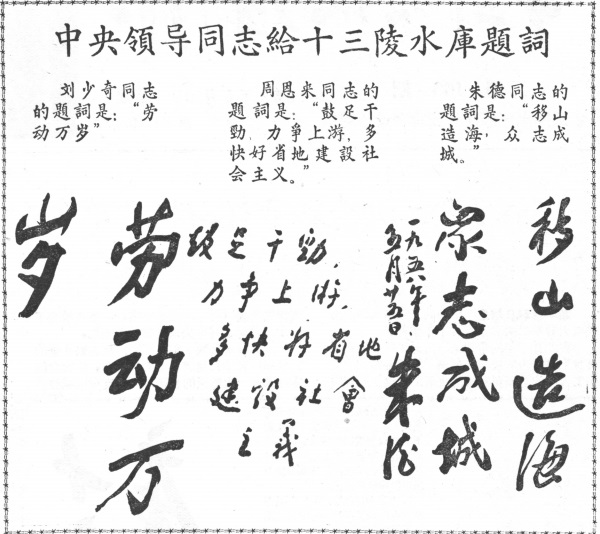 中央領导同志給十三陵水庫題詞
刘少奇同志
的題詞是：“劳
动万岁”
周恩来同志的
題詞是：“鼓足干
勁，力爭上游，多
快好省地建設社
会主义。”
朱德同志的
題詞是：“移山
造海，众志成
城。”
移山造海
眾志成城
一九五八年
五月廿五日
朱德
鼓足干勁，
力争上游，
多快好省地
建設社會
主義
劳动万
岁